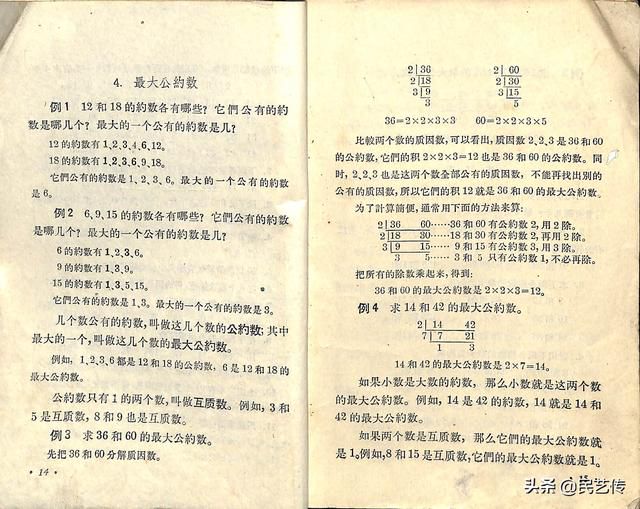 4. 最大公約数
例1 12和18的約数各有哪些？它們公有的約
数是哪几个？最大的一个公有的約数是几？
12的約数有1,2,3,4,6,12。
18的約数有1,2,3,6,9,18。
它們公有的約数是1、2、3、6。最大的一个公有的約数
是6。
例2 6,9,15的約数各有哪些？它們公有的約数是
哪几个？最大的一个公有的約数是几？
6的約数有1,2,3,6。
9的約数有1,3,9。
15的約数有1,3,5,15。
它們公有的約数是1,3。最大的一个公有的約数是3。
几个数公有的約数，叫做这几个数的公約数；其中
最大的一个，叫做这几个数的最大公約数。
例如，1、2、3、6都是12和18的公約数，6是12和18的
最大公約数。
公約数只有1的两个数，叫做互质数。例如，3和
5是互质数，8和9也是互质数。
例3 求36和60的最大公約数。
先把36和60分解质因数。
• 14 •
2|36 2|60
2|18 2|30
3|9 3|15
3 5
36=2×2×3×3 60=2×2×3×5
比較两个数的质因数，可以看出，质因数2、2、3是36和60
的公約数，它們的积2×2×3=12也是36和60的公約数。同
时，2、2、3也是这两个数全部公有的质因数，不能再找出別的
公有的质因数，所以它們的积12就是36和60的最大公約数。
为了計算簡便，通常用下面的方法来算：
2|36 60……36和60有公約数2，用2除。
2|18 30……18和30有公約数2，再用2除。
3|9 15……9和15有公約数3，用3除。
3 5……3和5只有公約数1，不必再除。
把所有的除数乘起来，得到：
36和60的最大公約数是2×2×3=12。
例4 求14和42的最大公約数。
2|14 42
7|7 21
1 3
14和42的最大公約数是2×7=14。
如果小数是大数的約数，那么小数就是这两个数
的最大公約数。例如，14是42的約数，14就是14和
42的最大公約数。
如果两个数是互质数，那么它們的最大公約数就
是1。例如，8和15是互质数，它們的最大公約数就是1。
头条 @民艺传